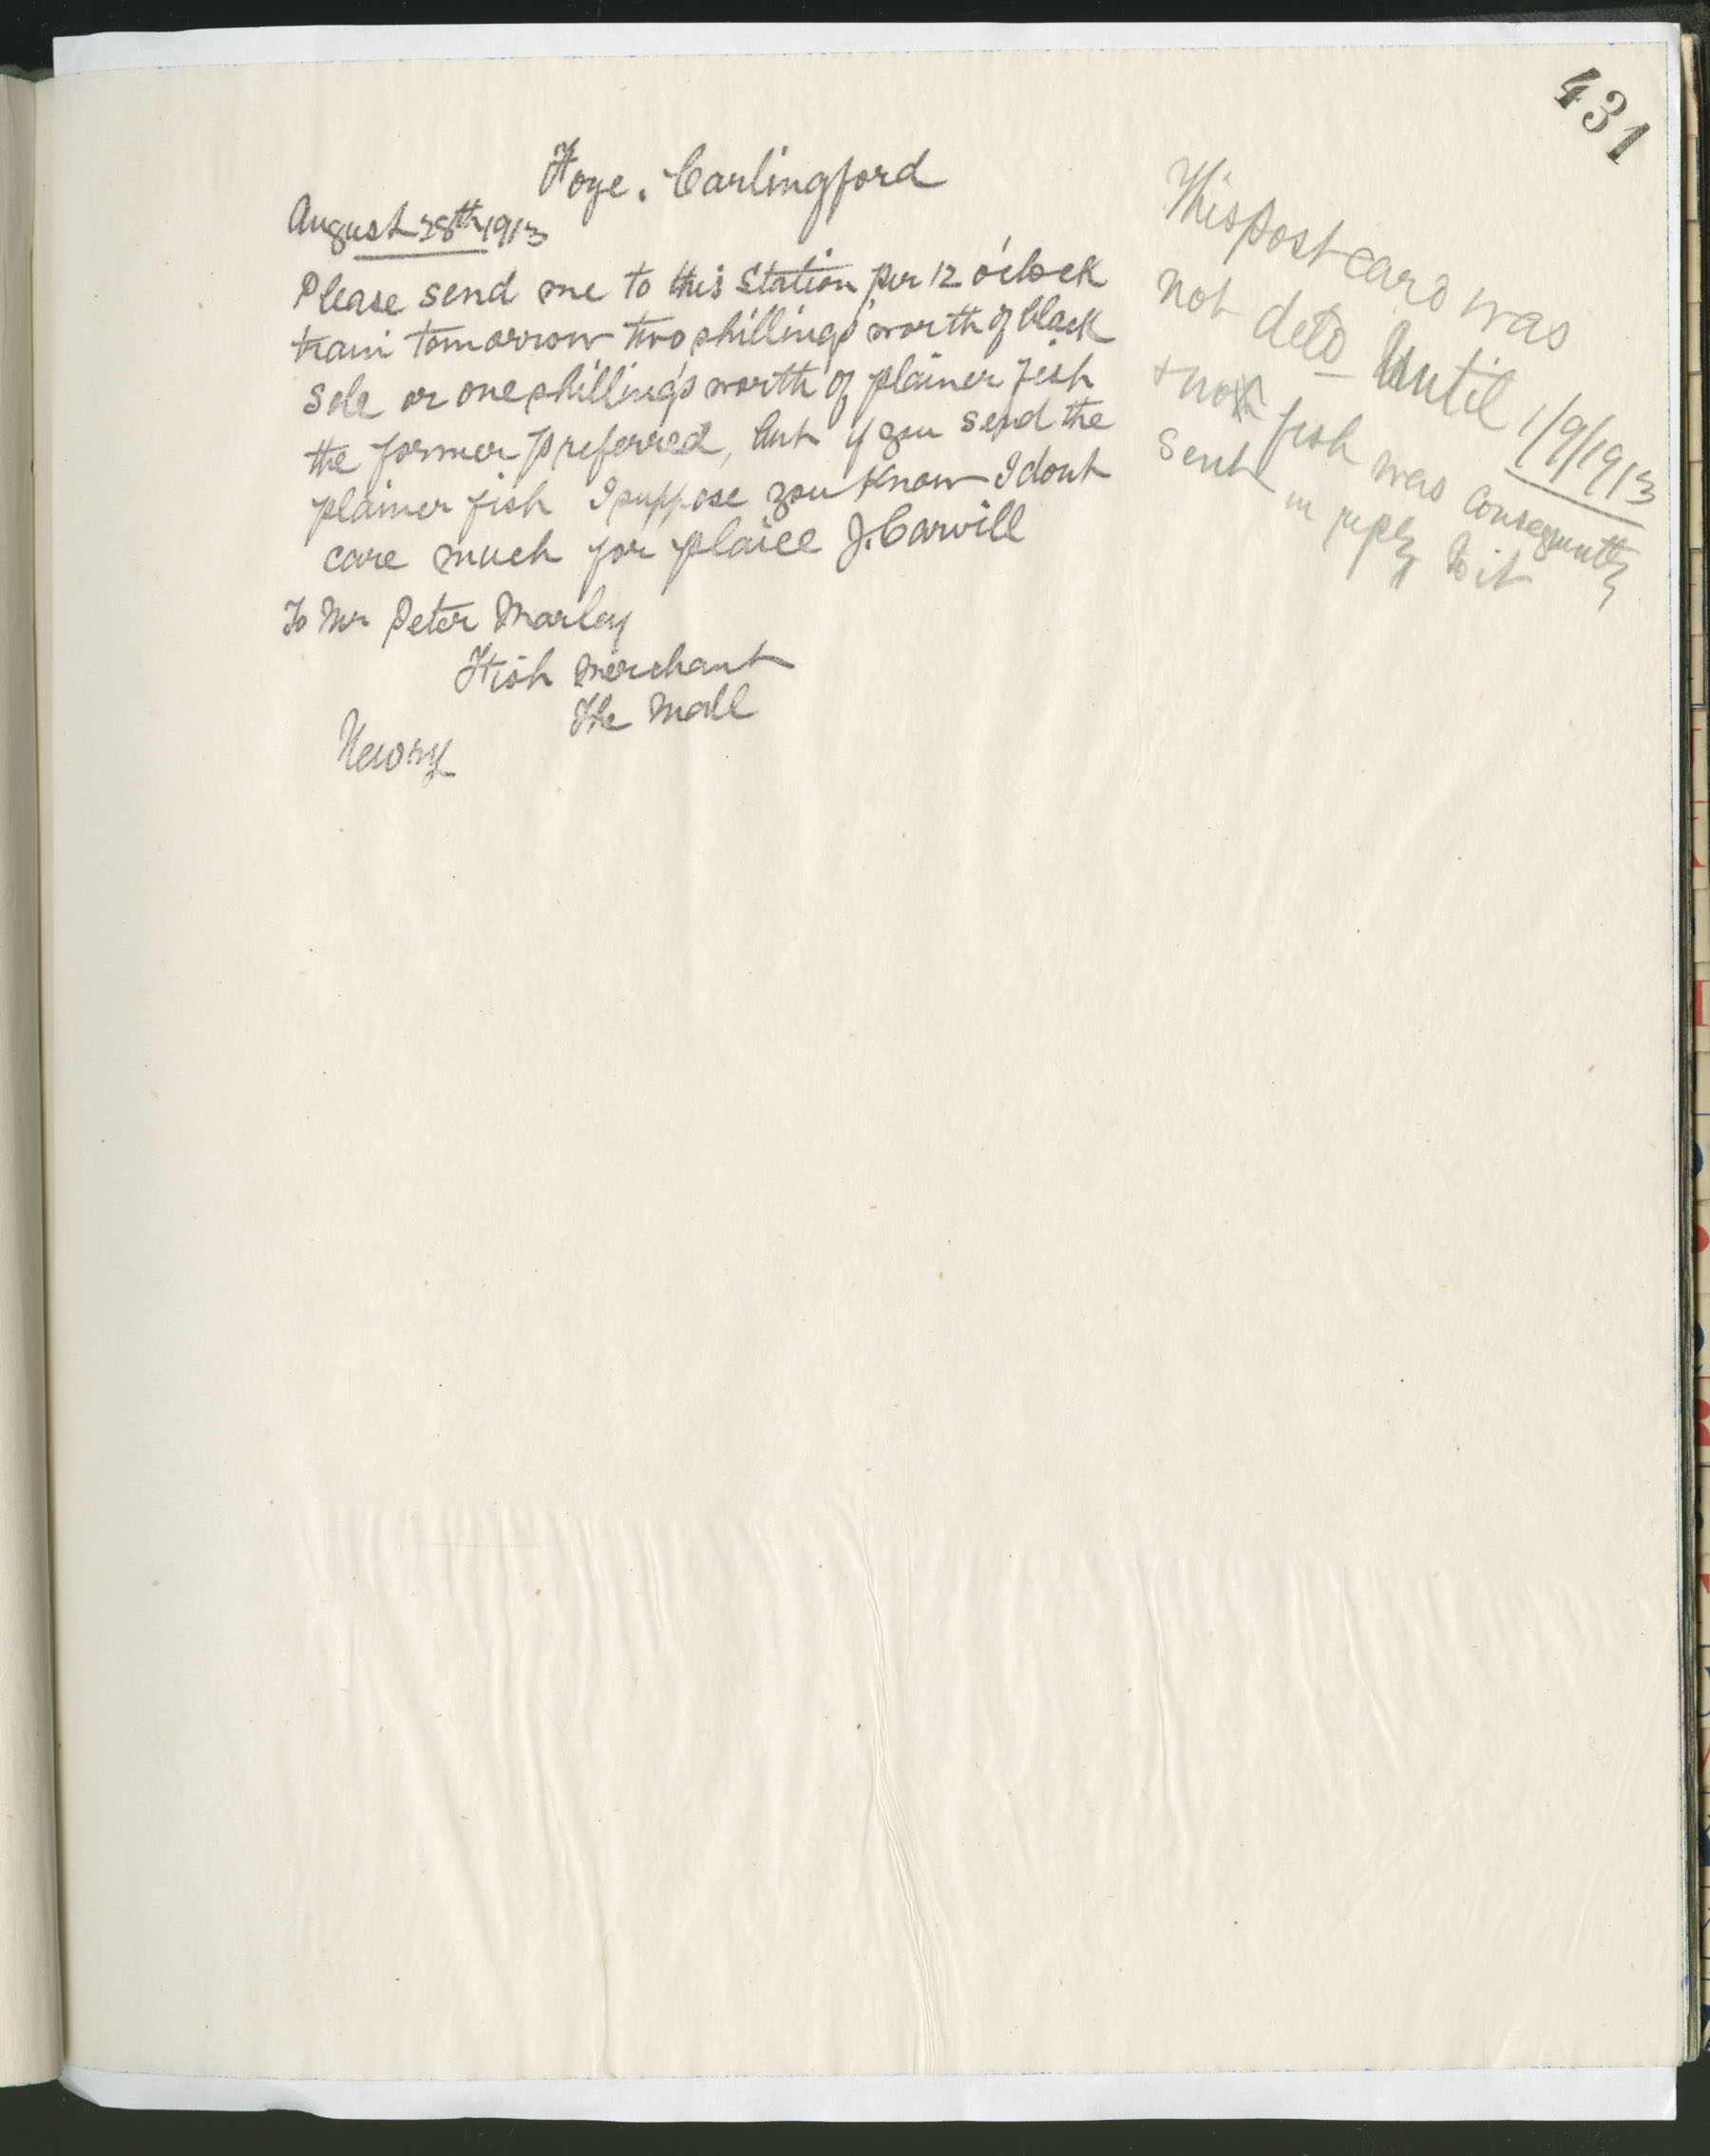 431
Foye. Carlingford
August 28th 1913
Please send me to this Station per 12 o'clock
train tomorrow two shillings' worth of black
Sole or one shilling's worth of plainer fish
the former preferred, but if you send the
plainer fish I suppose you know I dont
care much for plaice J. Carvill
To Mr Peter Marley
Fish Merchant
The Mall
Newry
This post card was
not deld until 1/9/1913
+ no fish was consequently
sent in reply to it